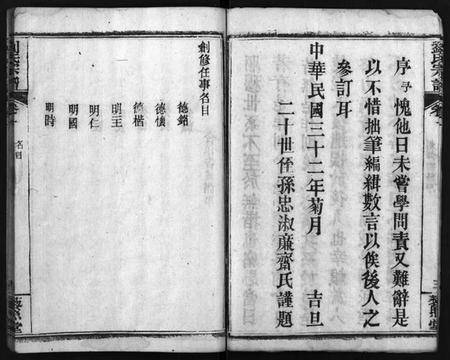 序予愧他日未嘗學問責又難辭是
以不惜拙筆編緝數言以俟後人之
參訂耳
中華民國三十二年菊月 吉旦
二十世侄孫忠淑廉齋氏謹題
創修任事名目
德銘
德懷
德楷
明王
明仁
明國
明時
名目